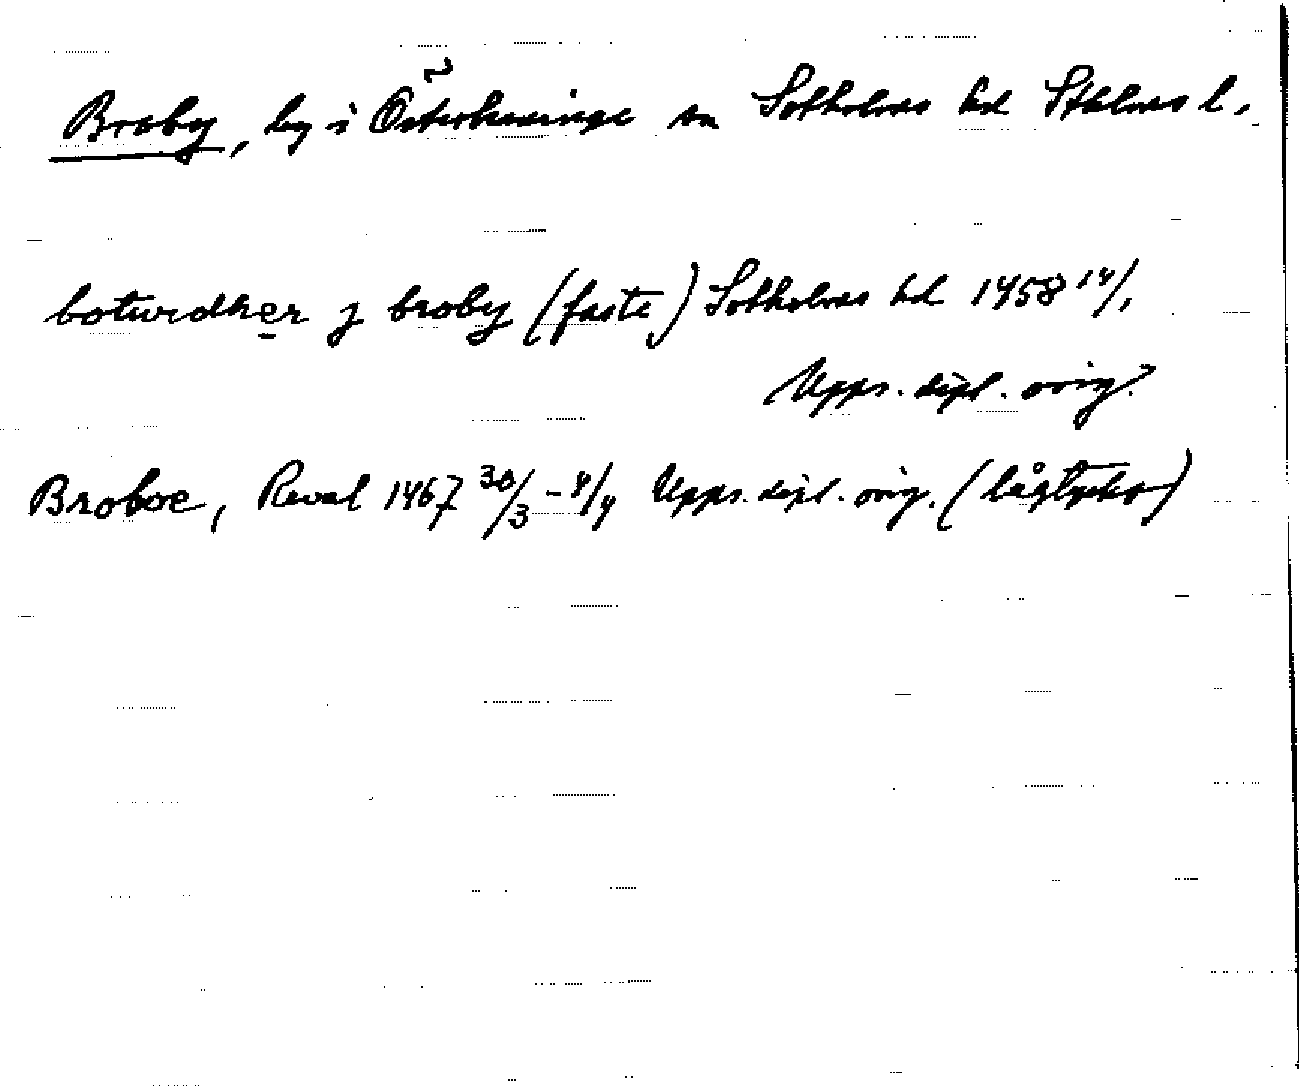 Broby, by i Österhaninge sn Sotholms hd Sthlms l.
botwidher j broby (faste) Sotholms hd 1458 14/1
Upps. dipl. orig.
Broboe, Reval 1467 30/3 - 4/4 Upps. dipl. orig. (lågtyska)